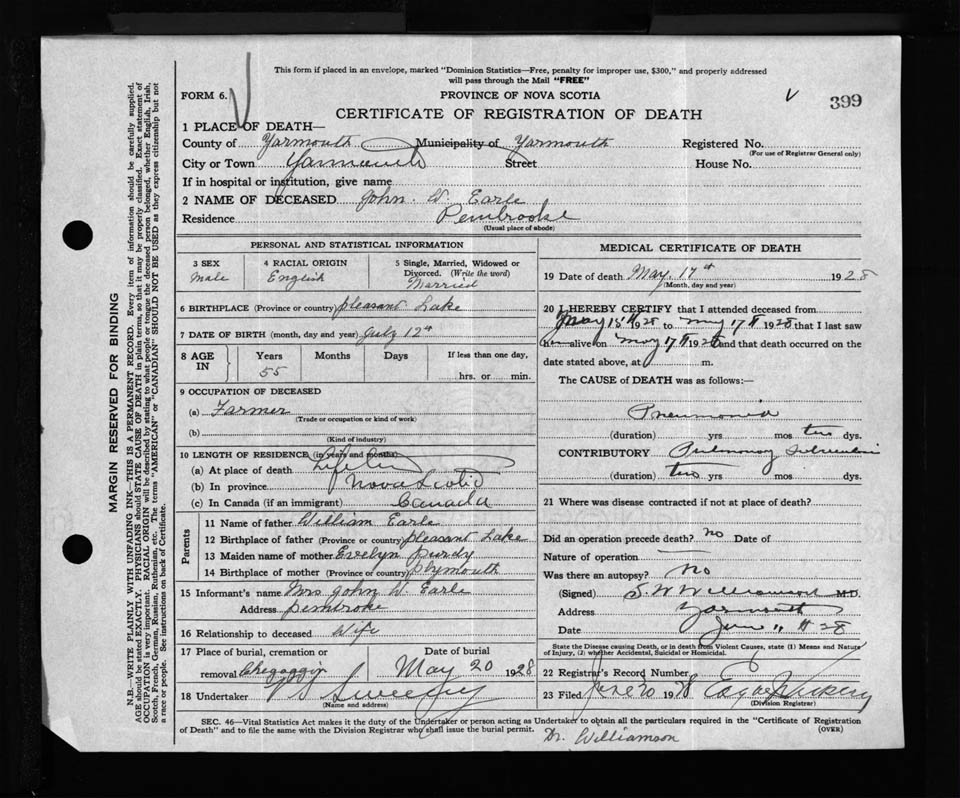 This form if placed in an envelope, marked "Dominion Statistics—Free, penalty for improper use, $300," and properly addressed
will pass through the Mail "FREE"
FORM 6.
PROVINCE OF NOVA SCOTIA
399
CERTIFICATE OF REGISTRATION OF DEATH
1 PLACE OF DEATH—
County of Yarmouth Municipality of Yarmouth Registered No.
(For use of Registrar General only)
City or Town Yarmouth Street House No.
If in hospital or institution, give name
2 NAME OF DECEASED John. W. Earle
Residence Pembrooke
(Usual place of abode)
PERSONAL AND STATISTICAL INFORMATION
3 SEX 4 RACIAL ORIGIN 5 Single, Married, Widowed or
Divorced. (Write the word)
Male English Married
6 BIRTHPLACE (Province or country) pleasant Lake
7 DATE OF BIRTH (month, day and year) July 12th
8 AGE IN Years Months Days If less than one day,
55 hrs. or min.
9 OCCUPATION OF DECEASED
(a) Farmer
(Trade or occupation or kind of work)
(b)
(Kind of industry)
10 LENGTH OF RESIDENCE (in years and months)
(a) At place of death
(b) In province Nova Scotia
(c) In Canada (if an immigrant) Canada
Parents
11 Name of father William Earle
12 Birthplace of father (Province or country) pleasant Lake
13 Maiden name of mother Evelyn Purdy
14 Birthplace of mother (Province or country) plymouth
15 Informant's name Mrs John W. Earle
Address Pembroke
16 Relationship to deceased Wife
17 Place of burial, cremation or Date of burial
removal Chegoggin May 20 1928
18 Undertaker V S Sweeny
(Name and address)
MEDICAL CERTIFICATE OF DEATH
19 Date of death May. 17th 1928
(Month, day and year)
20 I HEREBY CERTIFY that I attended deceased from
May 15th 1928 to May 17th 1928 that I last saw
him alive on May 17th 1928 and that death occurred on the
date stated above, at m.
The CAUSE of DEATH was as follows:—
Pneumonia
(duration) yrs mos two dys.
CONTRIBUTORY Pulmonary
(duration) two yrs. mos dys.
21 Where was disease contracted if not at place of death?
Did an operation precede death? no Date of
Nature of operation
Was there an autopsy? No
(Signed) S. W Williamson M.D.
Address Yarmouth
Date June 11th 28
State the Disease causing Death, or in death from Violent Causes, state (1) Means and Nature
of Injury, (2) whether Accidental, Suicidal or Homicidal.
22 Registrar's Record Number
23 Filed June 20 1928
(Division Registrar)
SEC. 46—Vital Statistics Act makes it the duty of the Undertaker or person acting as Undertaker to obtain all the particulars required in the "Certificate of Registration
of Death" and to file the same with the Division Registrar who shall issue the burial permit.
(OVER)
Dr. Williamson
MARGIN RESERVED FOR BINDING
N.B.—WRITE PLAINLY WITH UNFADING INK—THIS IS A PERMANENT RECORD. Every item of information should be carefully supplied.
AGE should be stated EXACTLY. PHYSICIANS should STATE CAUSE OF DEATH in plain terms, so that it may be properly classified. Exact statement of
OCCUPATION is very important. RACIAL ORIGIN will be described by stating to what people or tongue the deceased person belonged, whether English, Irish,
Scotch, French, German, Russian, Ruthenian, etc. The terms "AMERICAN" or "CANADIAN" SHOULD NOT BE USED as they express citizenship but not
a race or people. See instructions on back of Certificate.